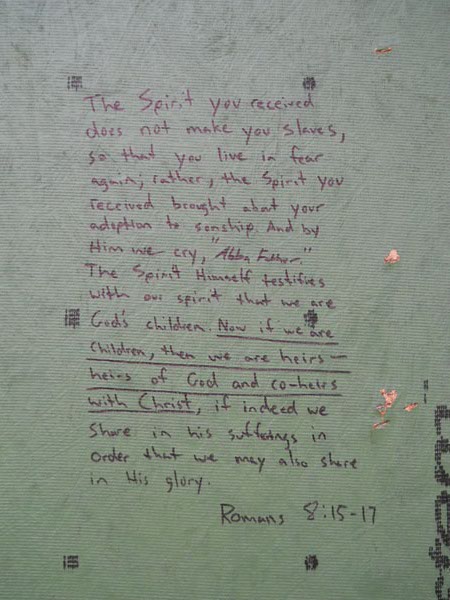 The Spirit you received
does not make you slaves,
so that you live in fear
again; rather, the Spirit you
received brought about your
adoption to sonship. And by
Him we cry, "Abba Father."
The Spirit Himself testifies
with our spirit that we are
God's children. Now if we are
Children, then we are heirs—
heirs of God and co-heirs
with Christ, if indeed we
Share in his sufferings in
order that we may also share
in His glory.
Romans 8:15-17